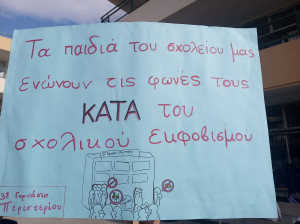 Τα παιδιά του σχολείου μας
ενώνουν τις φωνές τους
ΚΑΤΑ του
σχολικού εκφοβισμού
Γυμνάσιο
Περιστερίου